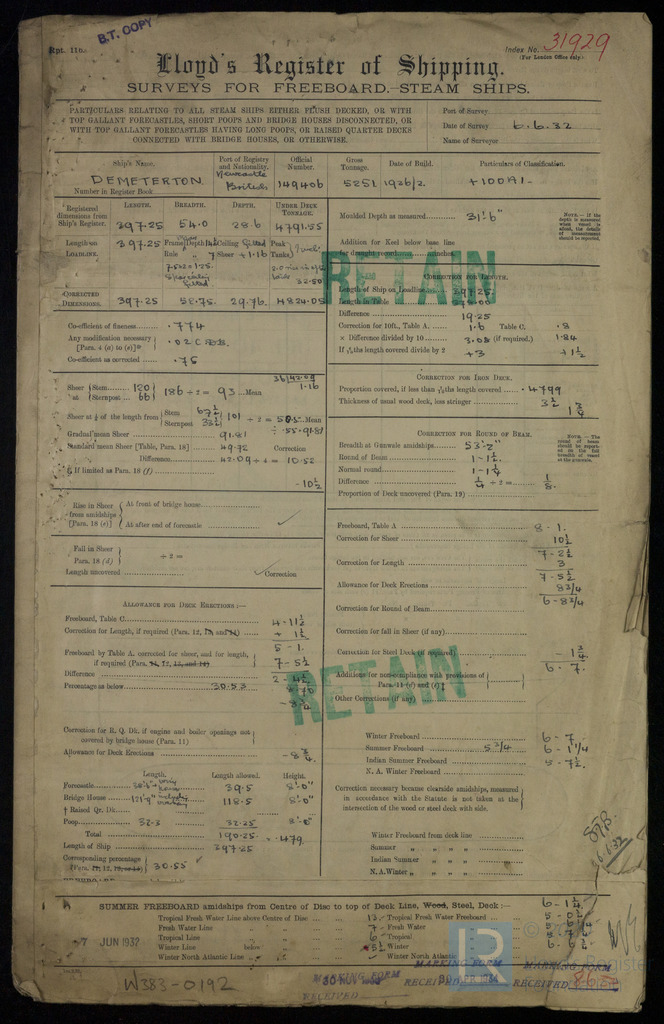 Rpt. 11b.
B.T. COPY
Index No. 31929
(For London Office only.)
Lloyd's Register of Shipping.
SURVEYS FOR FREEBOARD.—STEAM SHIPS.
PARTICULARS RELATING TO ALL STEAM SHIPS EITHER FLUSH DECKED, OR WITH
TOP GALLANT FORECASTLES, SHORT POOPS AND BRIDGE HOUSES DISCONNECTED, OR
WITH TOP GALLANT FORECASTLES HAVING LONG POOPS, OR RAISED QUARTER DECKS
CONNECTED WITH BRIDGE HOUSES, OR OTHERWISE.
Port of Survey
Date of Survey 6.6.32
Name of Surveyor
Ship's Name. Port of Registry and Nationality. Official Number. Gross Tonnage. Date of Build. Particulars of Classification.
DEMETERTON. Newcastle British 149406 5251 1926/2 +100A1-
Number in Register Book
Registered dimensions from Ship's Register. LENGTH. BREADTH. DEPTH. UNDER DECK TONNAGE.
397.25 54.0 28.6 4791.55
Length on LOADLINE. 397.25
CORRECTED DIMENSIONS. 397.25 52.75. 29.76. 4824.05
Co-efficient of fineness .774
Any modification necessary [Para. 4 (a) to (e)] .02
Co-efficient as corrected .75
Sheer at Stem 120 Sternpost 66 186 ÷ 2 = 93 Mean
Sheer at ⅛ of the length from Stem 67½ Sternpost 33½ 101 ÷ 2 = 50.5 Mean
Gradual mean Sheer 91.81
Standard mean Sheer [Table, Para. 18] 49.72 Correction
Difference 42.09 ÷ 4 = 10.52
If limited as Para. 18 (f)
-10½
Rise in Sheer from amidships [Para. 18 (e)] At front of bridge house
At after end of forecastle
Fall in Sheer Para. 18 (d) ÷ 2 =
Length uncovered Correction
ALLOWANCE FOR DECK ERECTIONS:—
Freeboard, Table C 4-11½
Correction for Length, if required + 1½
5-1.
Freeboard by Table A. corrected for sheer, and for length, if required 7-5½
Difference 2-4½
Percentage as below 30.53
-8¾
Correction for R. Q. Dk. if engine and boiler openings not covered by bridge house (Para. 11)
Allowance for Deck Erections -8¾
Length. Length allowed. Height.
Forecastle 39.5 8'.0"
Bridge House 121'-9" 118.5 8'.0"
† Raised Qr. Dk.
Poop 32.3 32.25 8'.0"
Total 190.25 = .479
Length of Ship 397.25
Corresponding percentage 30.53
Moulded Depth as measured 31'.6"
NOTE.—If the depth is measured when vessel is afloat, the details of measurement should be reported.
Addition for Keel below base line for draught record inches
RETAIN
CORRECTION FOR LENGTH.
Length of Ship on Loadline 397.25
Length in Table 378.00
Difference 19.25
Correction for 10ft., Table A 1.6 Table C. .8
× Difference divided by 10 3.08 (if required.) 1.84
If 6/10ths length covered divide by 2 +3 +1½
CORRECTION FOR IRON DECK.
Proportion covered, if less than 7/10ths length covered .4799
Thickness of usual wood deck, less stringer 3½ 1¾
CORRECTION FOR ROUND OF BEAM.
Breadth at Gunwale amidships 53'.2"
Round of Beam 1-1½
Normal round 1-1¼
Difference ¼ ÷ 2 = ⅛
Proportion of Deck uncovered (Para. 19)
NOTE.—The round of beam should be reported on the full breadth of vessel at the gunwale.
Freeboard, Table A 8-1.
Correction for Sheer 10½
7-2½
Correction for Length 3
7-5½
Allowance for Deck Erections 8¾
6-8¾
Correction for Round of Beam
Correction for fall in Sheer (if any)
Correction for Steel Deck (if required) -1¾
6.7.
RETAIN
Additions for non-compliance with provisions of Para. 11 (d) and (e)
Other Corrections (if any)
Winter Freeboard 6-7
Summer Freeboard 5¾ 6-1¼
Indian Summer Freeboard 5-7½
N. A. Winter Freeboard
Correction necessary because clearside amidships, measured in accordance with the Statute is not taken at the intersection of the wood or steel deck with side.
Winter Freeboard from deck line
Summer " " " "
Indian Summer " " " "
N.A. Winter " " " "
SUMMER FREEBOARD amidships from Centre of Disc to top of Deck Line, Wood, Steel, Deck:— 6-1¼
Tropical Fresh Water Line above Centre of Disc 13 Tropical Fresh Water Freeboard 5-0¼
Fresh Water Line " " 7 Fresh Water
Tropical Line " " 6 Tropical
Winter Line below " " 5½ Winter
Winter North Atlantic Line " " Winter North Atlantic
7 JUN 1932
W383-0192
MARKING FORM
RECEIVED
30 NOV
MARKING FORM
RECEIVED
MARKING FORM
RECEIVED